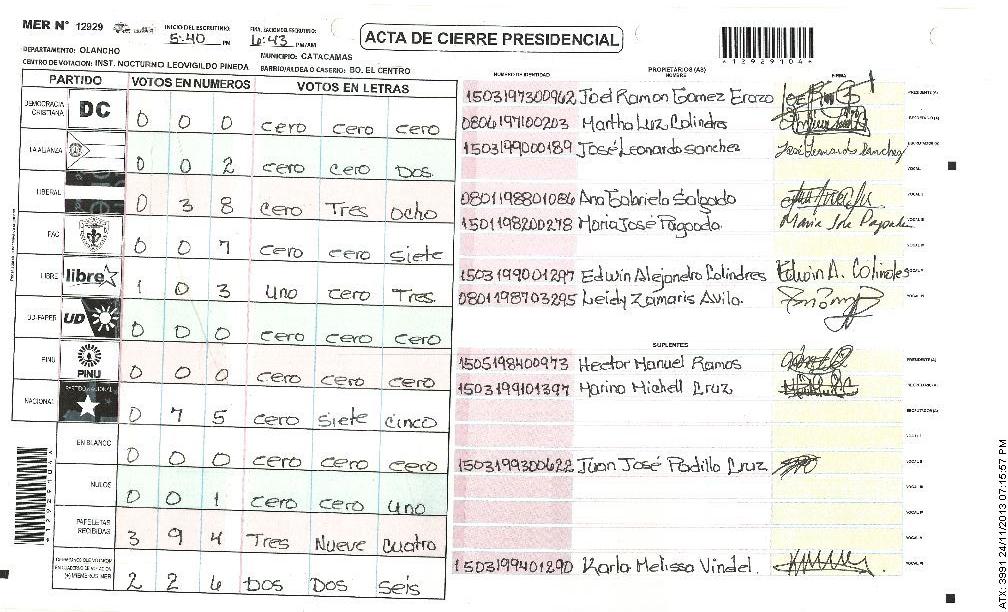 MER N° 12929
INICIO DEL ESCRUTINIO: 5:40 PM
6:43 PM/AM
ACTA DE CIERRE PRESIDENCIAL
*12929104*
DEPARTAMENTO: OLANCHO
MUNICIPIO: CATACAMAS
CENTRO DE VOTACION: INST. NOCTURNO LEOVIGILDO PINEDA
BARRIO/ALDEA O CASERIO: BO. EL CENTRO
PARTIDO VOTOS EN NUMEROS VOTOS EN LETRAS
DEMOCRACIA CRISTIANA DC 0 0 0 cero cero cero
LA ALIANZA 0 0 2 cero cero Dos
LIBERAL 0 3 8 cero Tres ocho
PAC 0 0 7 cero cero siete
LIBRE libre 1 0 3 uno cero Tres
UD-FAPER UD 0 0 0 cero cero cero
PINU PINU 0 0 0 cero cero cero
NACIONAL PARTIDO NACIONAL 0 7 5 cero siete cinco
EN BLANCO 0 0 0 cero cero cero
NULOS 0 0 1 cero cero uno
PAPELETAS RECIBIDAS 3 9 4 Tres Nueve cuatro
2 2 6 DOS DOS seis
NUMERO DE IDENTIDAD PROPIETARIOS (AS) NOMBRE FIRMA
1503197300962 Joel Ramon Gomez Erazo PRESIDENTE (A)
0806197100203 Martha Luz Colindres SECRETARIO (A)
1503199000189 José Leonardo sanchez José Leonardo Sanchez ESCRUTADOR (A)
VOCAL I
0801198801086 Ana Gabriela Salgado VOCAL II
1501198200278 Maria José Pagoada VOCAL III
VOCAL IV
1503199001297 Edwin Alejandro Colindres Edwin A. Colindres VOCAL V
0801198703295 Leidy Zamaris Avila. VOCAL VI
SUPLENTES
1505198400973 Hector Manuel Ramos PRESIDENTE (A)
1503199101397 Marina Michell Cruz SECRETARIO (A)
ESCRUTADOR (A)
VOCAL I
1503199300622 Juan José Padilla Cruz VOCAL II
VOCAL III
VOCAL IV
VOCAL V
1503199401290 Karla Melissa Vindel. VOCAL VI
*12929104*
ATX: 3991 24/11/2013 07:15:57 PM